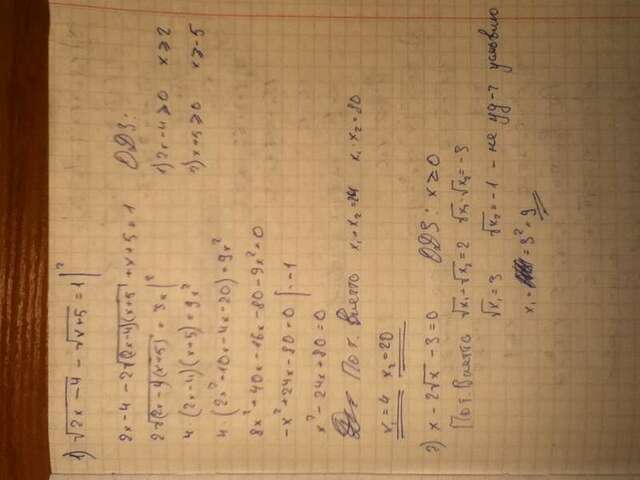 1) √2x-4 - √x+5 = 1 |²
2x-4 - 2√(2x-4)(x+5) + x+5 = 1
2√(2x-4)(x+5) = 3x |²
4·(2x-4)(x+5) = 9x²
4·(2x²+10x-4x-20) = 9x²
8x²+40x-16x-80-9x²=0
-x²+24x-80=0 |·-1
x²-24x+80=0
По т. Виетта x₁+x₂=24 x₁·x₂=80
x₁=4 x₂=20
ОДЗ:
1) 2x-4≥0 x≥2
2) x+5≥0 x≥-5
2) x-2√x-3=0 ОДЗ: x≥0
По т. Виетта √x₁+√x₂=2 √x₁·√x₂=-3
√x₁=3 √x₂=-1 - не уд-т условию
x₁= =3²=9